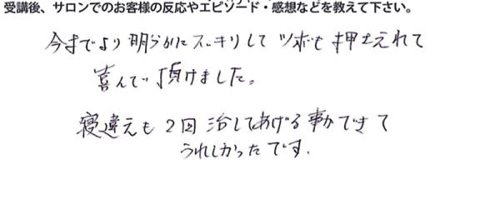 受講後、サロンでのお客様の反応やエピソード・感想などを教えて下さい。
今までより明らかにスッキリして ツボも押さえれて
喜んで頂けました。
寝違えも2回治してあげる事ができて
うれしかったです.